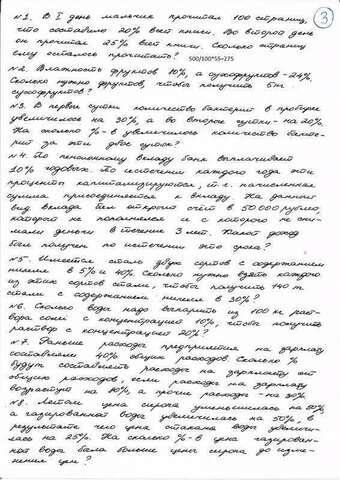 3
№1. В I день мальчик прочитал 100 страниц,
что составило 20% всей книги. Во второй день
он прочитал 25% всей книги. Сколько страниц
ему осталось прочитать? 500/100*55=275
№2. Влажность фруктов 80%, а сухофруктов -24%.
Сколько нужно фруктов, чтобы получить 5т
сухофруктов?
№3. В первые сутки количество бактерий в пробирке
увеличилось на 30%, а во вторые сутки - на 20%.
На сколько %-в увеличилось количество бакте-
рий за эти двое суток?
№4. По пенсионному вкладу банк выплачивает
10% годовых. По истечении каждого года эти
проценты капитализируются, т.е. начисленная
сумма присоединяется к вкладу. На данный
вид вклада был открыт счёт в 50 000 рублей
который не пополнялся и с которого не сни-
мали деньги в течение 3 лет. Какой доход
был получен по истечении этого срока?
№5. Имеется сталь двух сортов с содержанием
никеля в 5% и 40%. Сколько нужно взять каждого
из этих сортов стали, чтобы получить 140 т
стали с содержанием никеля в 30%?
№6. Сколько воды надо выпарить из 100 кг раст-
вора соли с концентрацией 10%, чтобы получить
раствор с концентрацией 20%?
№7. Раньше расходы предприятия на зарплату
составляли 40% общих расходов. Сколько %
будут составлять расходы на зарплату от
общих расходов, если расходы на зарплату
возрастут на 80%, а прочие расходы - на 30%
№8. Летом цена сиропа уменьшилась на 50%,
а газированной воды увеличилась на 50%, в
результате чего цена стакана воды увеличи-
лась на 25%. На сколько %-в цена газирован-
ной воды была больше цены сиропа до изме-
нения цен?